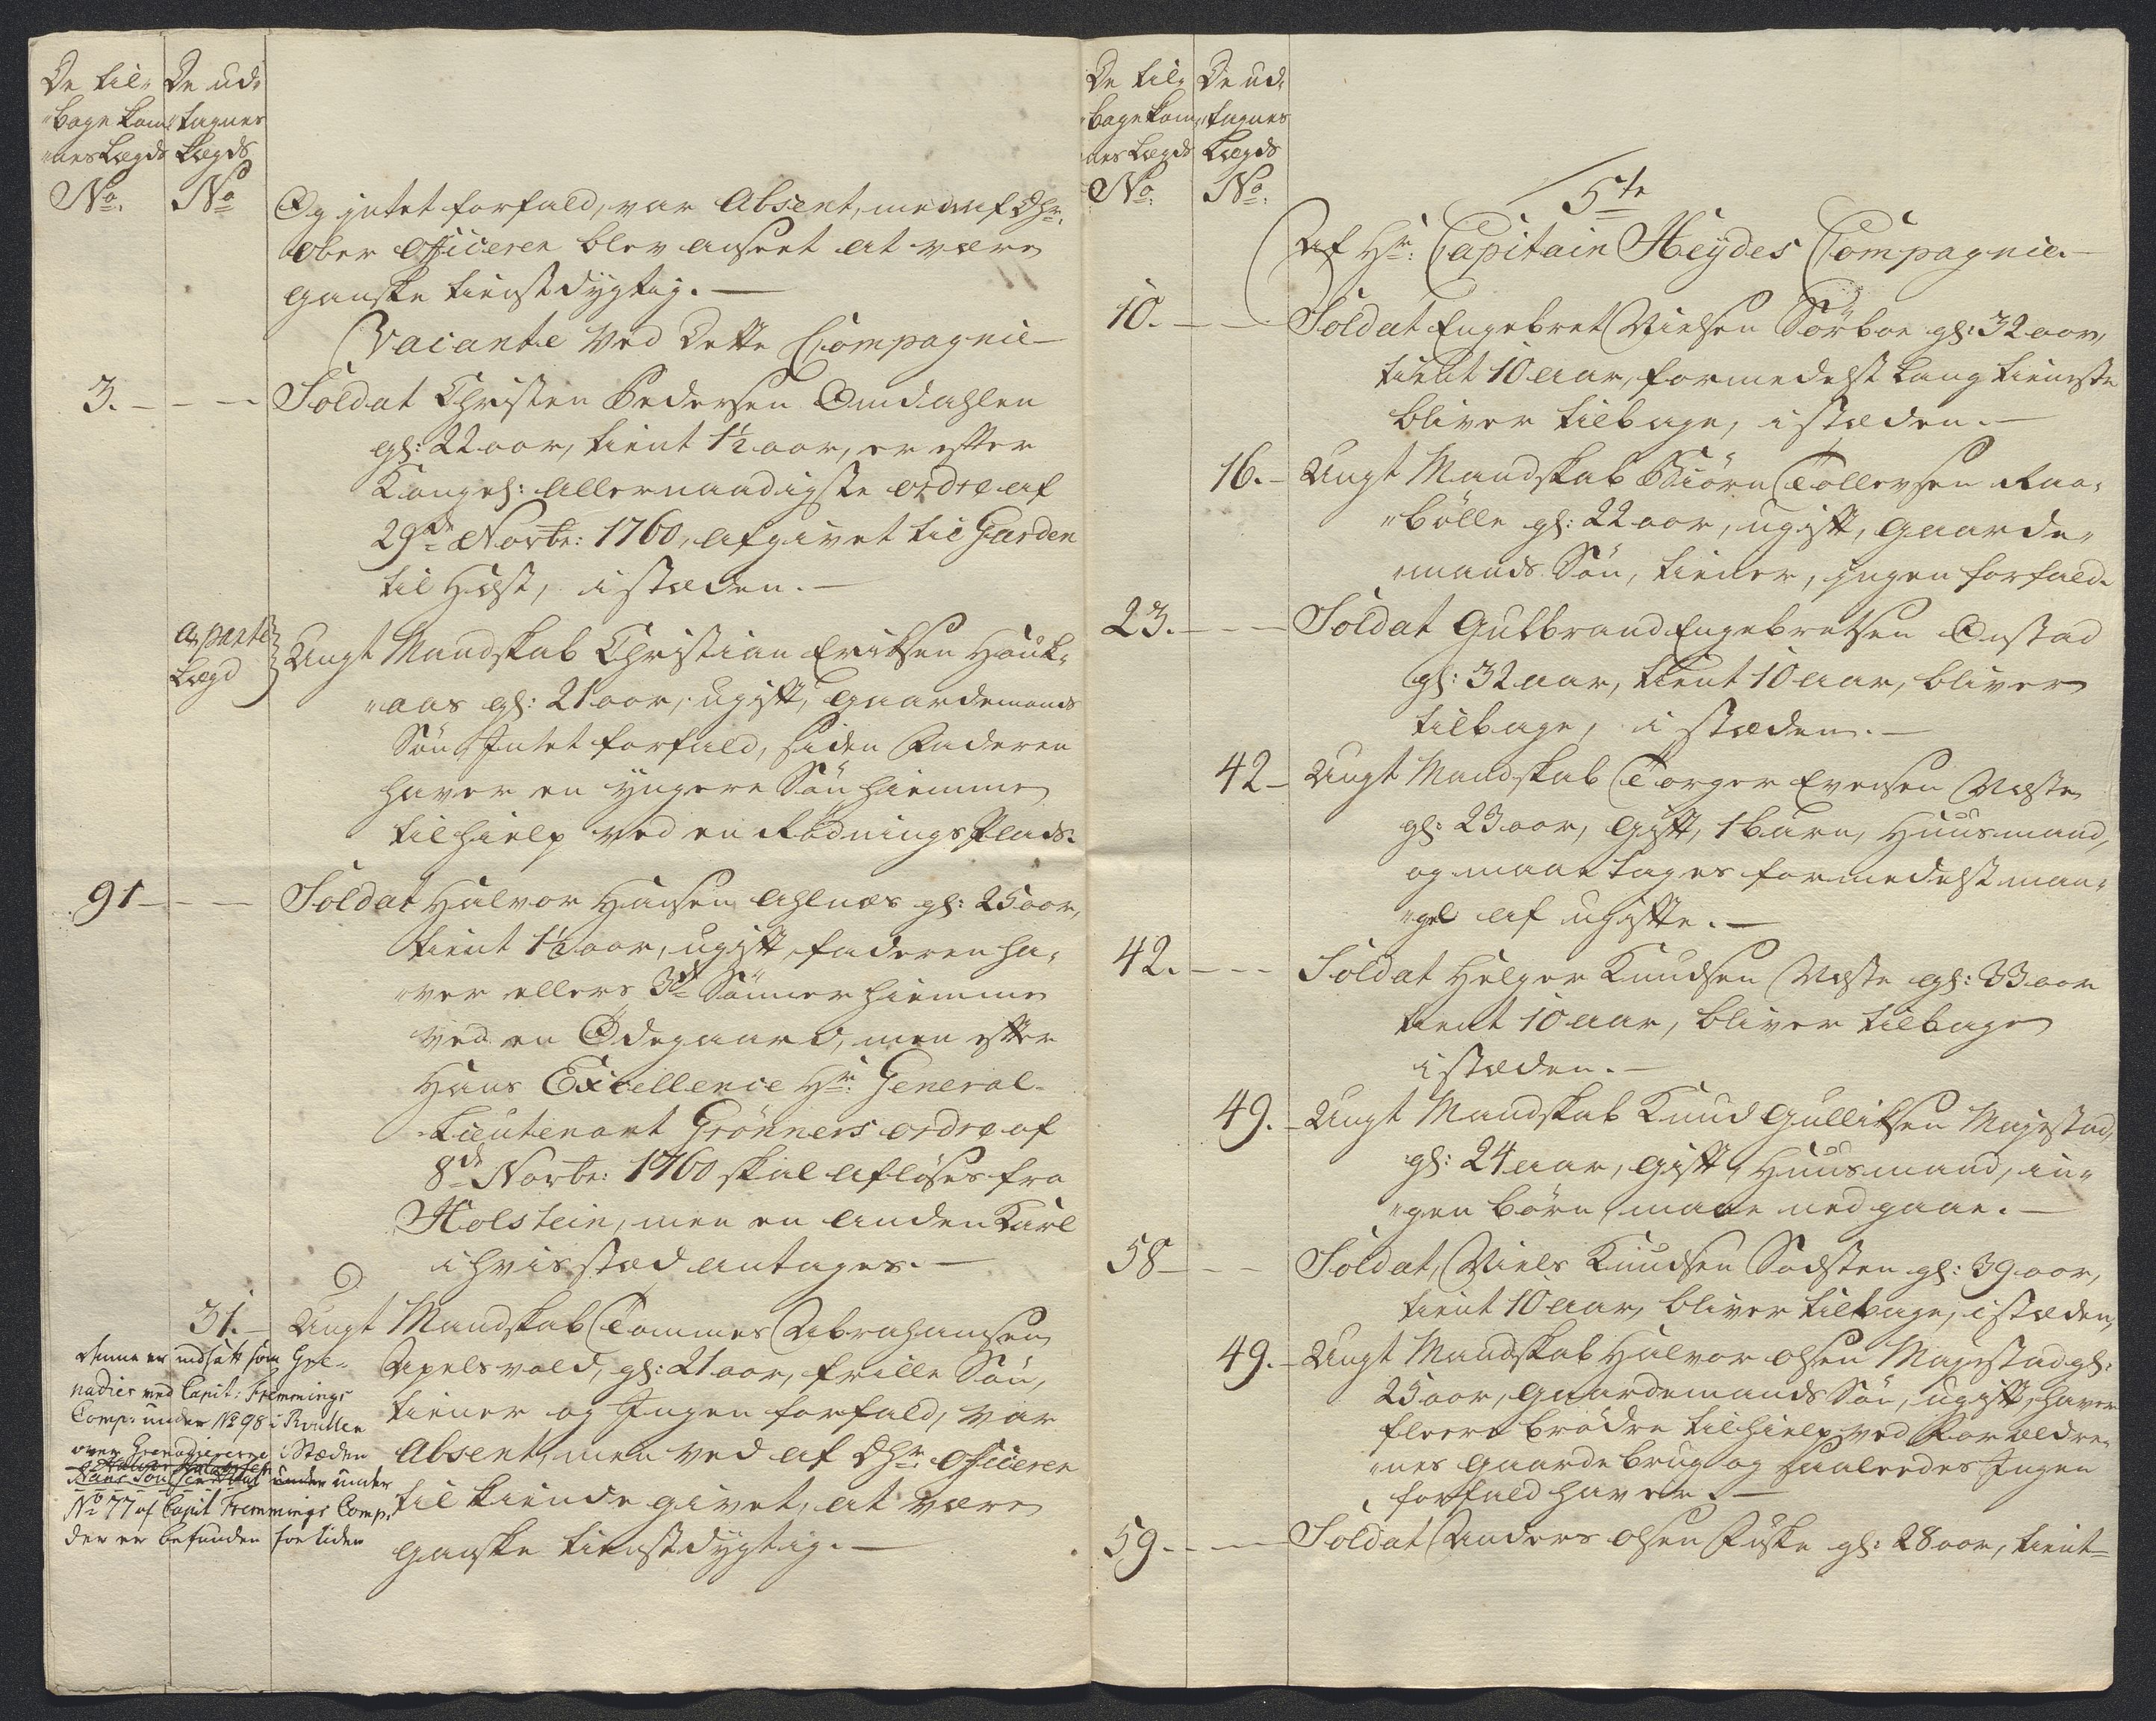 De til-
"bage kom-
"nes Lægds
No.
De ud-
"tagnes
Lægds
No
Og intet forfald, var Absent, men af Dhr.
Ober Officerer blev anseet at være
ganske tienstdygtig. —
Vacante ved dette Compagnie —
3. — — — Soldat Christen Pedersen Omdahlen
gl: 22 aar, tient 1½ aar, er efter
Kongel: allernaadigste ordre af
29de Novbr: 1760, afgivet til Garden
til Hæst, i stæden. —
a parte
Lægd
Ungt Mandskab Christian Eriksen Houk-
"aas gl: 21 aar, ugift, gaardemands
Søn Intet forfald, siden Faderen
haver en yngere Søn hiemme
til hielp ved en Rødnings Plads.
91 — — — Soldat Halvor Hansen Ahlnæs gl: 25 aar,
tient 1½ aar, ugift, faderen ha-
"ver ellers 3de Sønner hiemme
ved en Ødegaard, men efter
Hans Excellence Hr. General-
Lieutenant Grönners ordre af
8de Novbr: 1760 skal afløses fra
Holstein, men en anden Karl
i hvis stæd antages. —
31. — Ungt Mandskab Tommes Abrahamsen
Apelsvold, gl: 21 aar, frille Søn,
tiener og Ingen forfald, var
Absent, men ved af Dhr. Officerer
til kiende givet, at være
ganske tienstdygtig. —
denne er indsatt som Gre-
nadier ved Capit: Fremmings
Comp: under No 98 i Rullen
over Grenadererne i Stæden
under under
No 77 af Capit Fremmings Comp.
der er befunden for liden
De til-
"bage kom-
nes Lægds
No.
De ud-
"tagnes
Lægds
No.
5te
Af Hr: Capitain Heÿdes Compagnie. —
10. — — Soldat Engebret Nielsen Sörboe gl: 32 aar,
tient 10 aar, formedelst lang tieneste
bliver tilbage, i stæden. —
16. — Ungt Mandskab Biörn Tollevsen Raa-
"bölle gl: 22 aar, ugift, gaarde-
"mands Søn, tiener, ingen forfald.
23. — — — Soldat Gulbrand Engebretsen Onstad
gl: 32 aar, tient 10 aar, bliver
tilbage, i stæden. —
42 — Ungt Mandskab Torger Evensen Næste
gl: 23 aar, gift, 1 barn, Huusmand,
og maae tages formedelst man-
"gel af ugifte. —
42. — — — Soldat Helger Knudsen Næste gl: 33 aar
tient 10 aar, bliver tilbage
i stæden. —
49. — Ungt Mandskab Knud Gulliksen Majestad,
gl: 24 aar, gift, Huusmand, in-
"gen børn, maae nedgaae. —
58 — — — Soldat, Niels Knudsen Sodsten gl: 39 aar,
tient 10 aar, bliver tilbage, i stæden,
49. — Ungt Mandskab Halvor Olsen Majestad gl:
25 aar, gaardemands Søn, ugift, haver
fleere brødre til hielp ved Forældre-
"nes gaarde brug og saaledes Ingen
forfald haver. —
59. — — — Soldat Anders Olsen Fiske gl: 28 aar, tient=